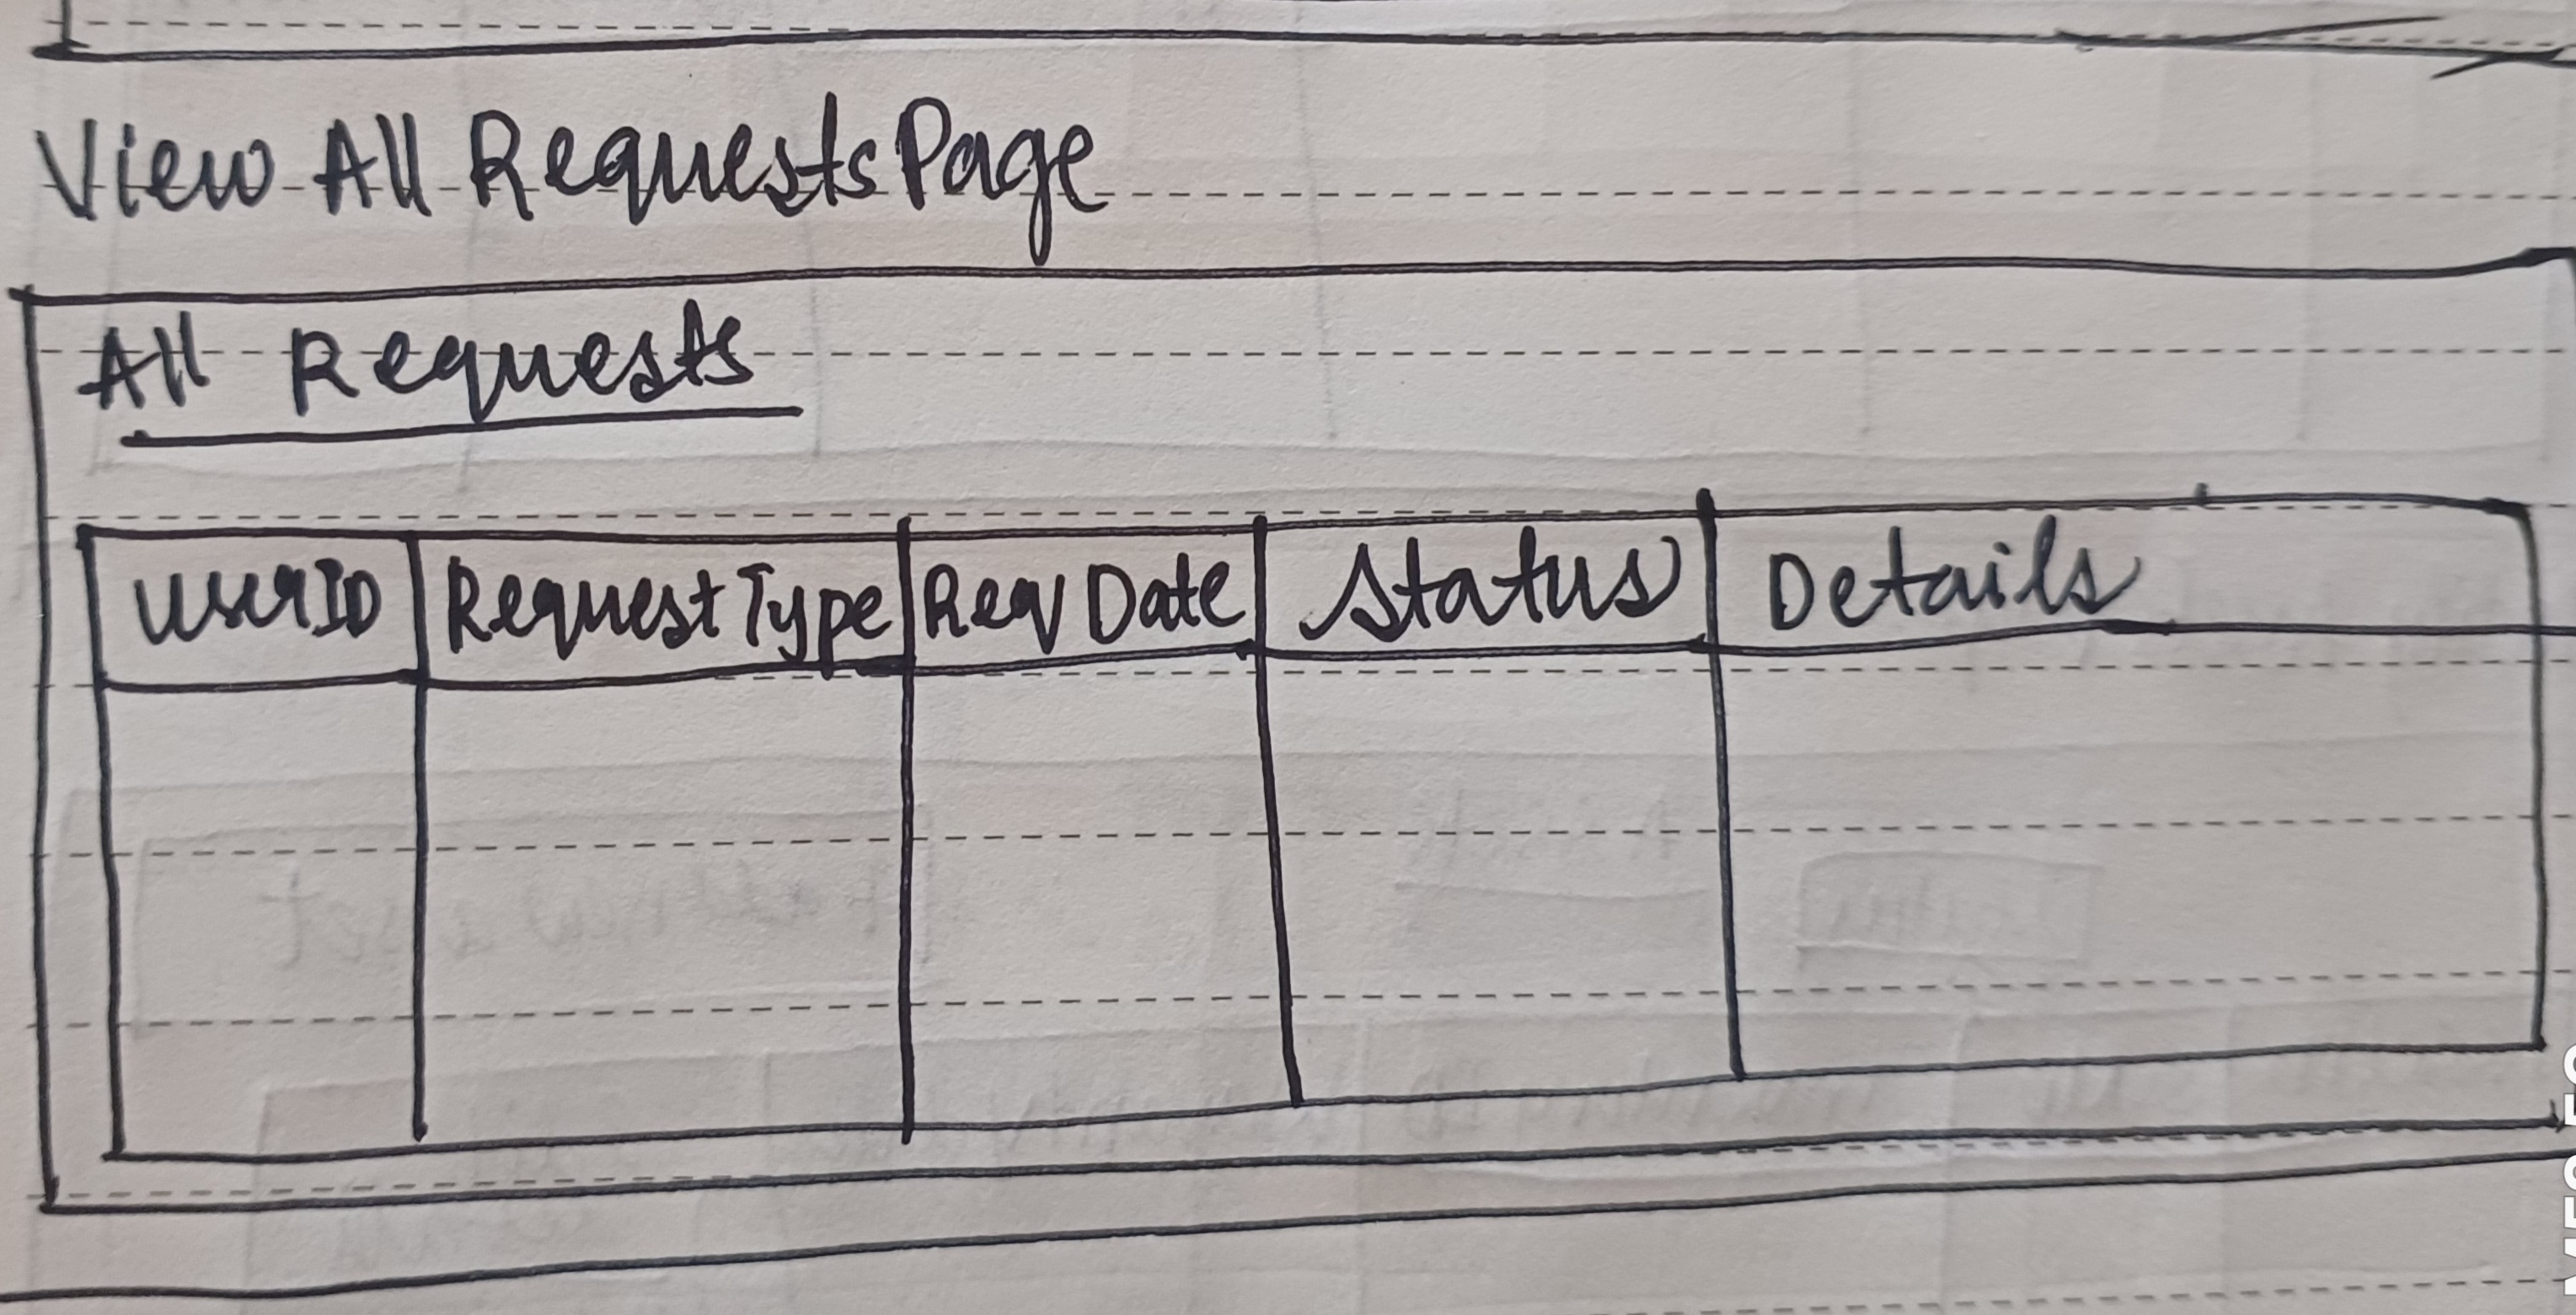 View All Requests Page
All Requests
UserID Request Type Req Date Status Details